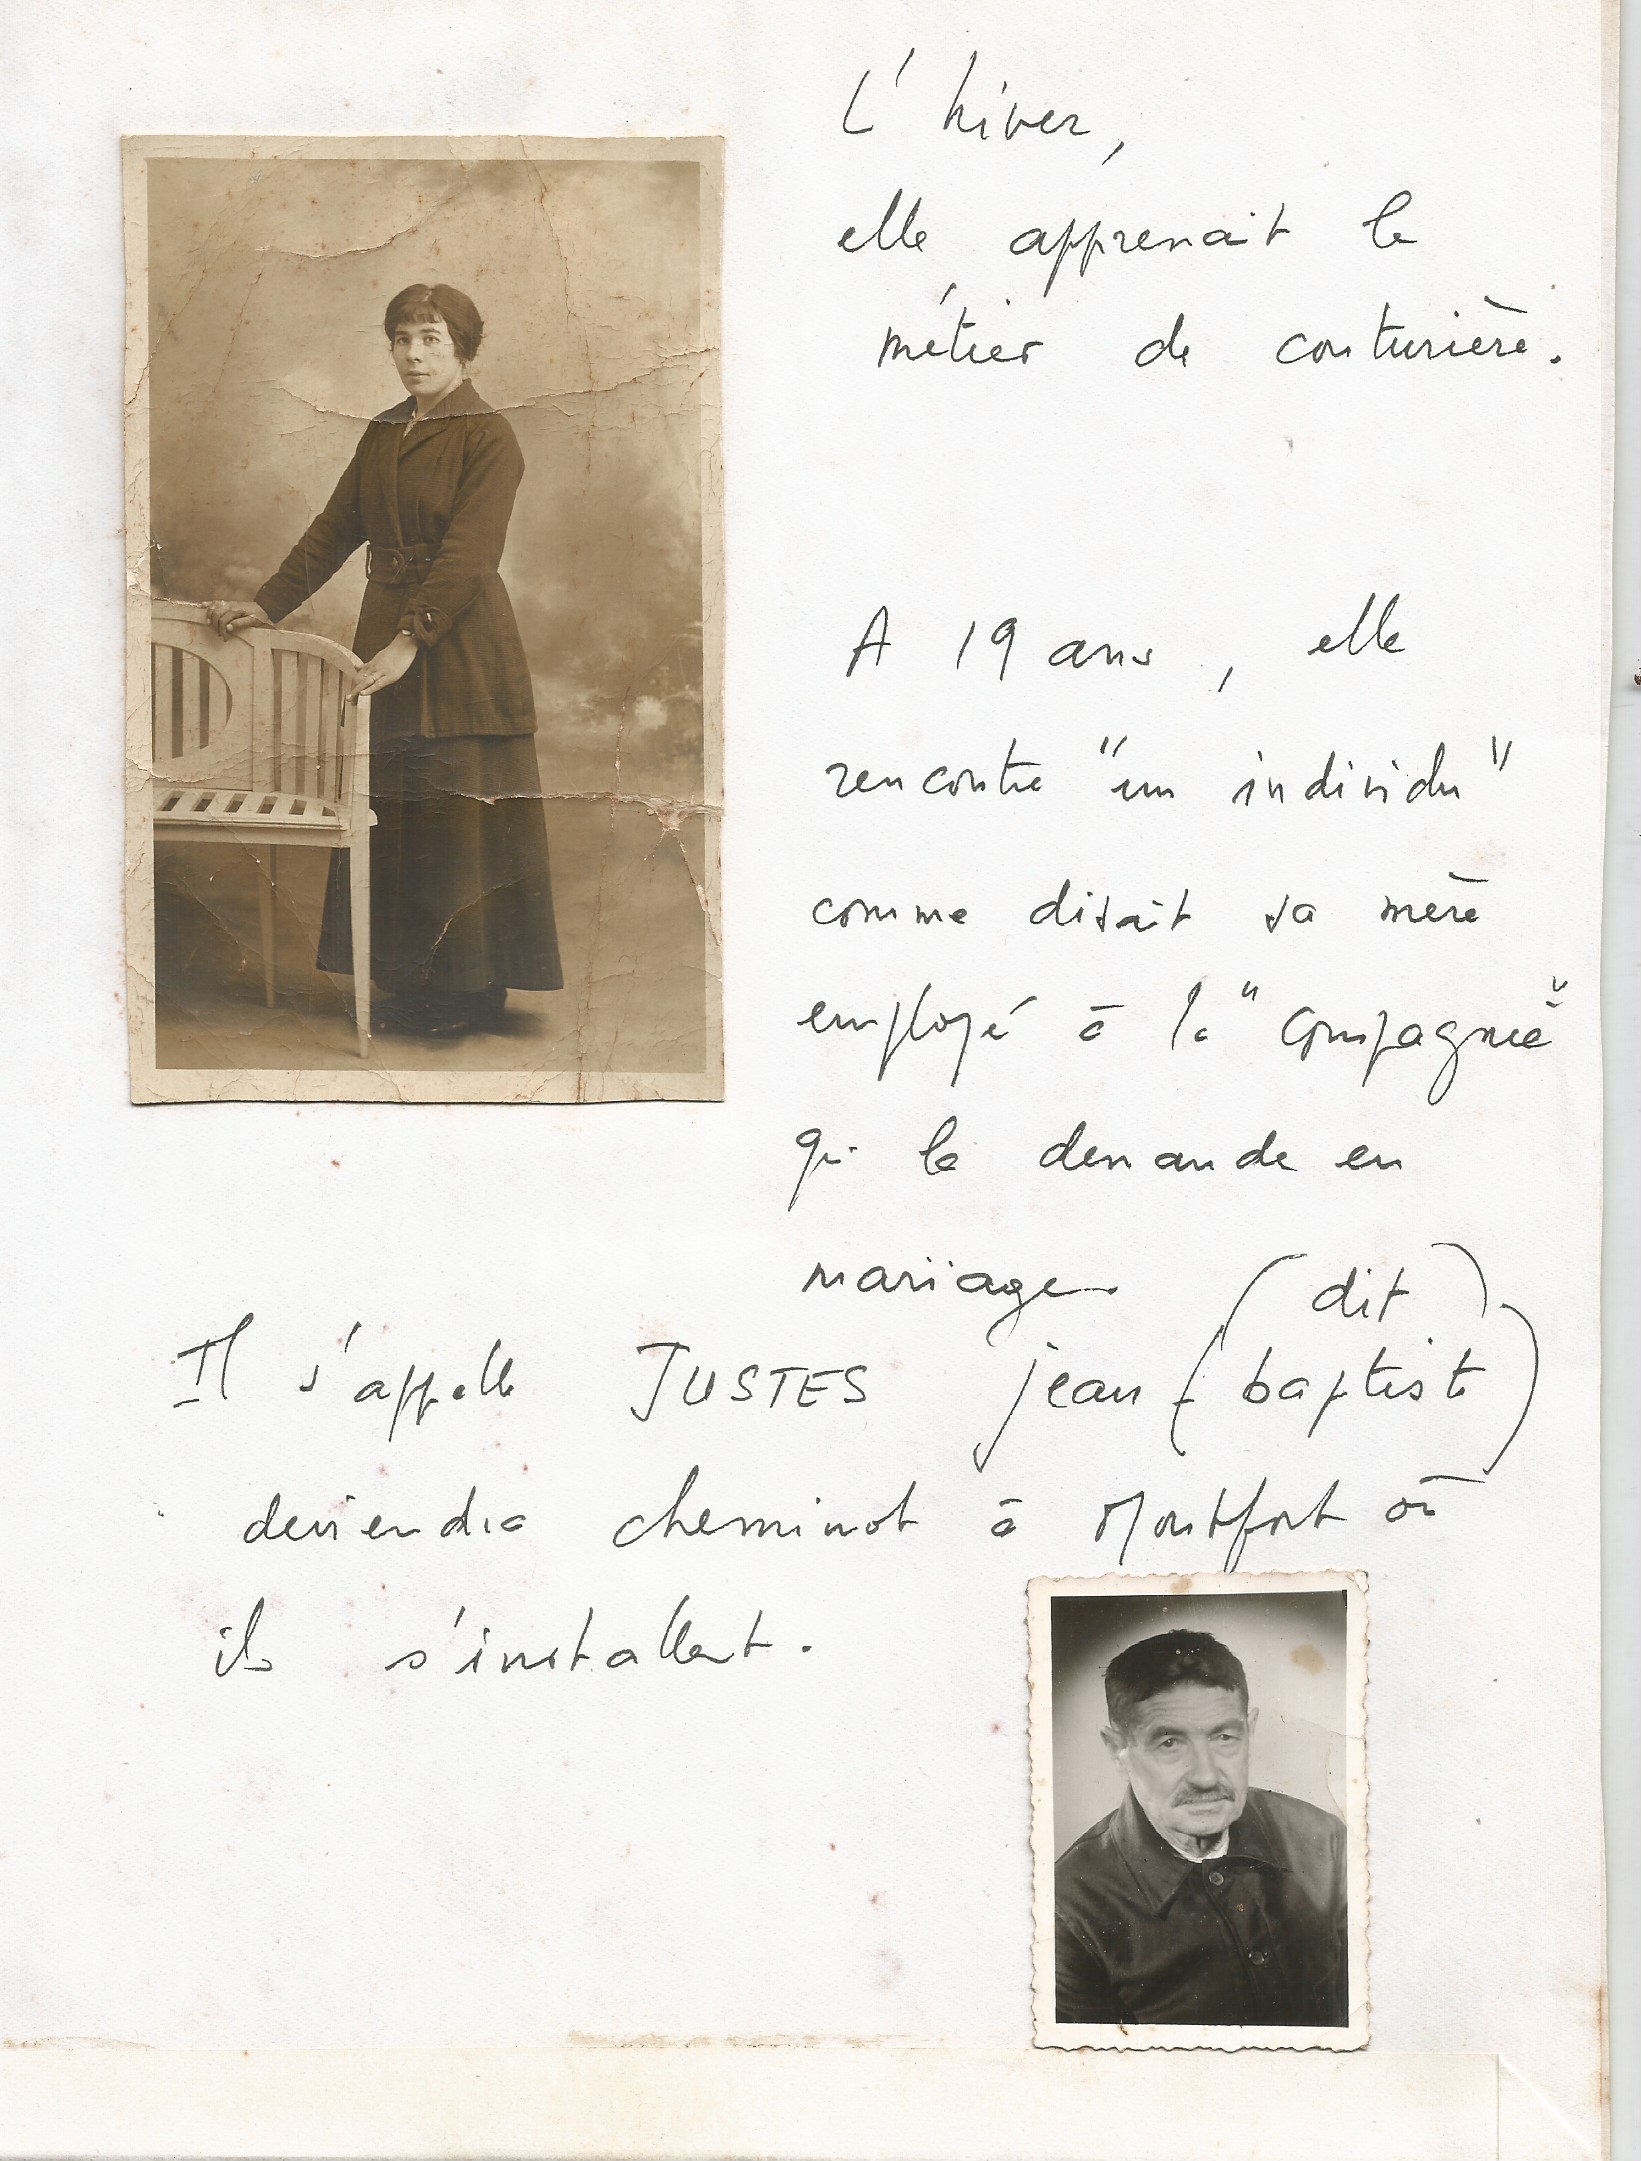 L'hiver,
elle apprenait le
métier de couturière.
A 19 ans, elle
rencontre "un individu"
comme disait sa mère
employé à la "Compagnie"
qui la demande en
mariage. (dit)
Il s'appelle JUSTES jean (baptiste)
deviendra cheminot à Montfort où
ils s'installent.